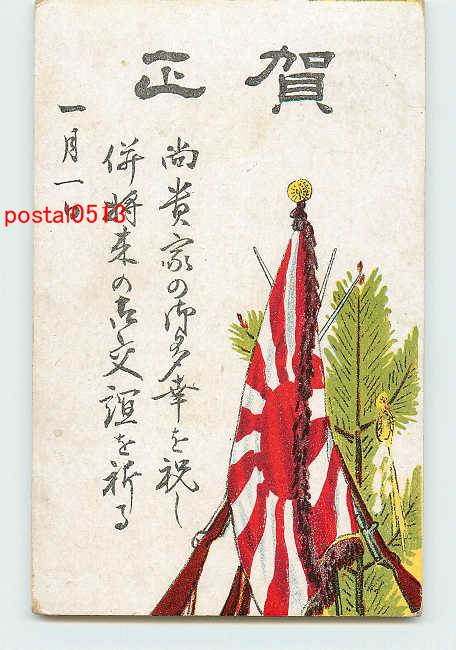 賀正
尚貴家の御多幸を祝し
併将来の御交誼を祈る
一月一日
postal0513